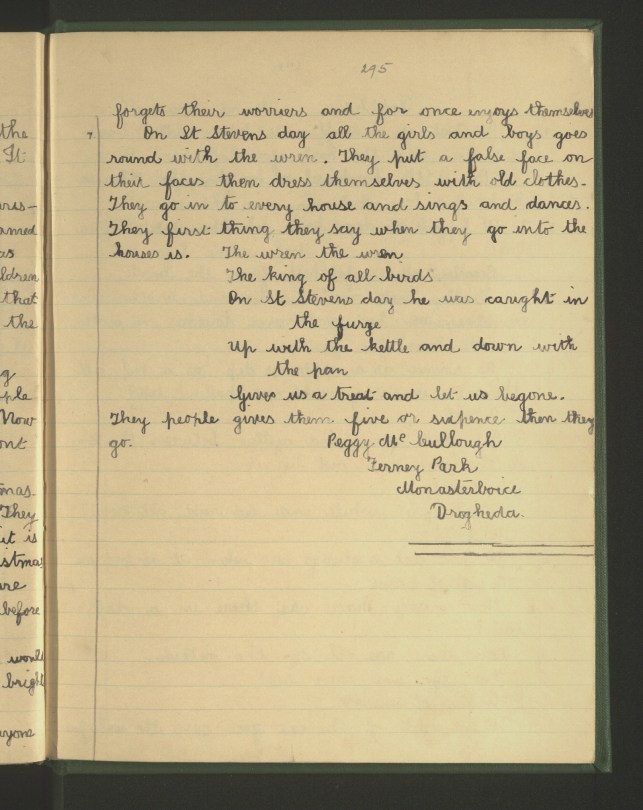 the
It
ris-
amed
as
ldren
that
the
g
ple
Now
ont
mas.
They
it is
stmas
are
before
would
bright
yone
295
forgets their worriers and for once enjoys themselves
7. On St Stevens day all the girls and boys goes
round with the wren. They put a false face on
their faces then dress themselves with old clothes.
They go in to every house and sings and dances.
They first thing they say when they go into the
houses is. The wren the wren
The king of all birds
On St Stevens day he was caright in
the furze
Up with the kettle and down with
the pan
Gives us a treat and let us begone.
They people gives them five or sixpence then they
go. Peggy Mc Cullough
Ferney Park
Monasterboice
Drogheda.